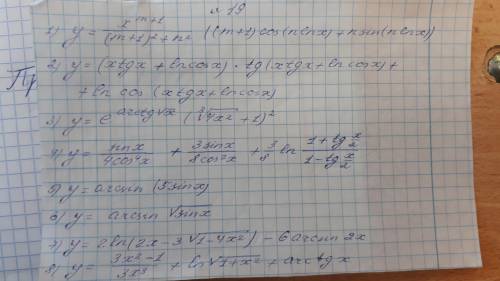 № 19
1) y = x^(m+1) / ((m+1)²+n²) ((m+1)cos(n ln x) + n sin(n ln x))
2) y = (x tgx + ln cosx) · tg(x tgx + ln cosx) +
+ ln cos (x tgx + ln cosx)
3) y = e^(arctg√x) (∛(4x²) + 1)²
4) y = sinx / 4cos⁴x + 3sinx / 8cos²x + 3/8 ln (1+tg x/2) / (1-tg x/2)
5) y = arcsin (5sinx)
6) y = arcsin √sinx
7) y = 2 ln(2x - 3√1-4x²) - 6 arcsin 2x
8) y = (3x²-1) / 3x³ + ln √1+x² + arctgx